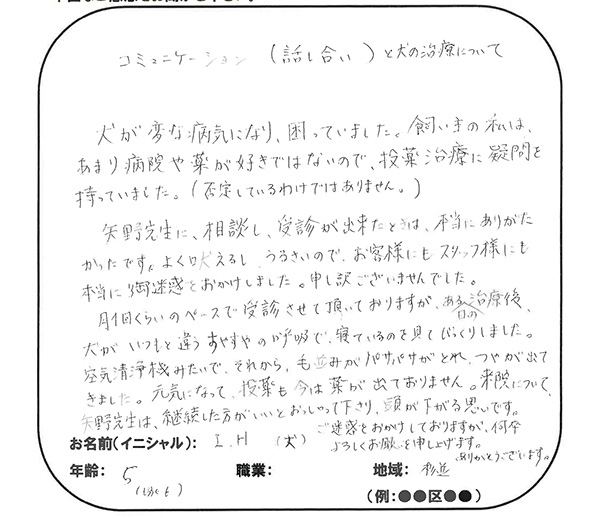 コミュニケーション (話し合い) と犬の治療について
犬が変な病気になり、困っていました。飼い主の私は、
あまり病院や薬が好きではないので、投薬治療に疑問を
持っていました。(否定しているわけではありません。)
矢野先生に、相談し、受診が出来たときは、本当にありがた
かったです。よく吠えるし、うるさいので、お客様にもスタッフ様にも
本当に御迷惑をおかけしました。申し訳ございませんでした。
月1回くらいのペースで受診させて頂いておりますが、ある日の治療後、
犬がいつもと違うすやすやの呼吸で、寝ているのを見てびっくりしました。
空気清浄機みたいで、それから、毛並みがパサパサがとれ、つやが出て
きました。元気になって、投薬も今は薬が出ておりません。来院について、
矢野先生は、継続した方がいいとおっしゃって下さり、頭が下がる思いです。
ご迷惑をおかけしておりますが、何卒
よろしくお願いを申し上げます。
ありがとうございます。
お名前(イニシャル): I.H (犬)
年齢: 5 職業: 地域: 杉並
(例:●●区●●)